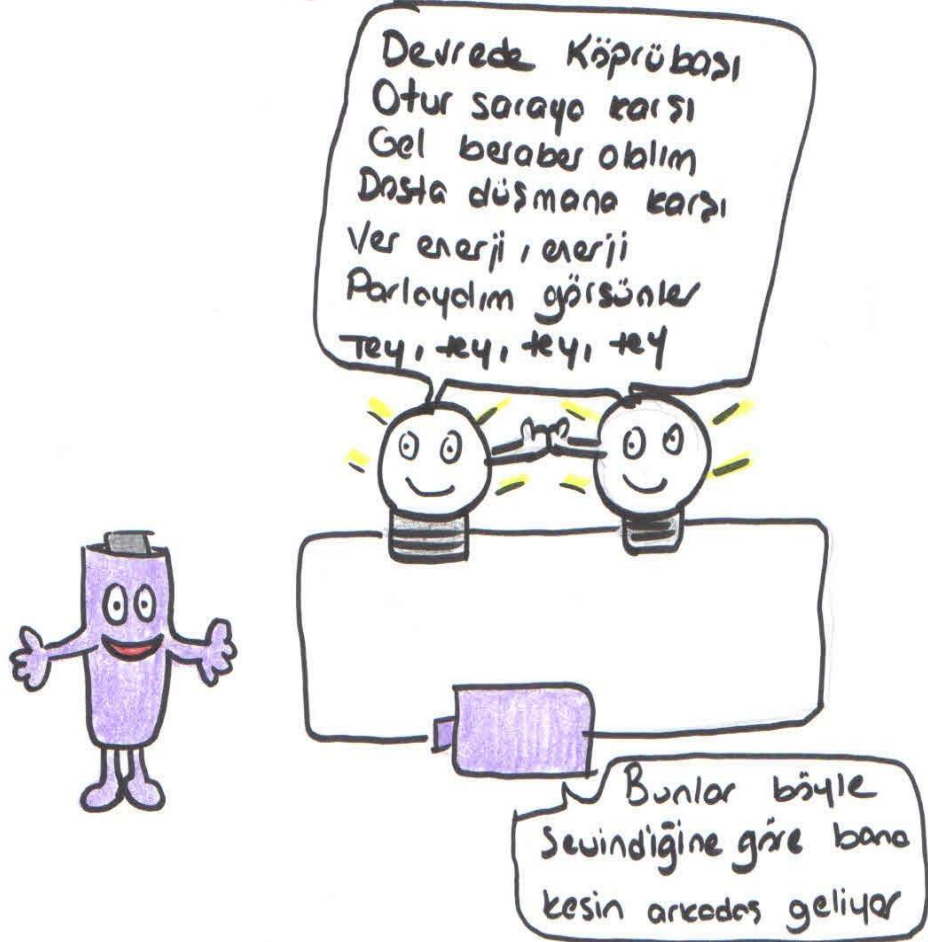 Devrede Köprübaşı
Otur saraya karşı
Gel beraber olalım
Dosta düşmana karşı
Ver enerji, enerji
Parlaydım görsünler
Tey, tey, tey, tey
Bunlar böyle
Sevindiğine göre bana
kesin arkadaş geliyor